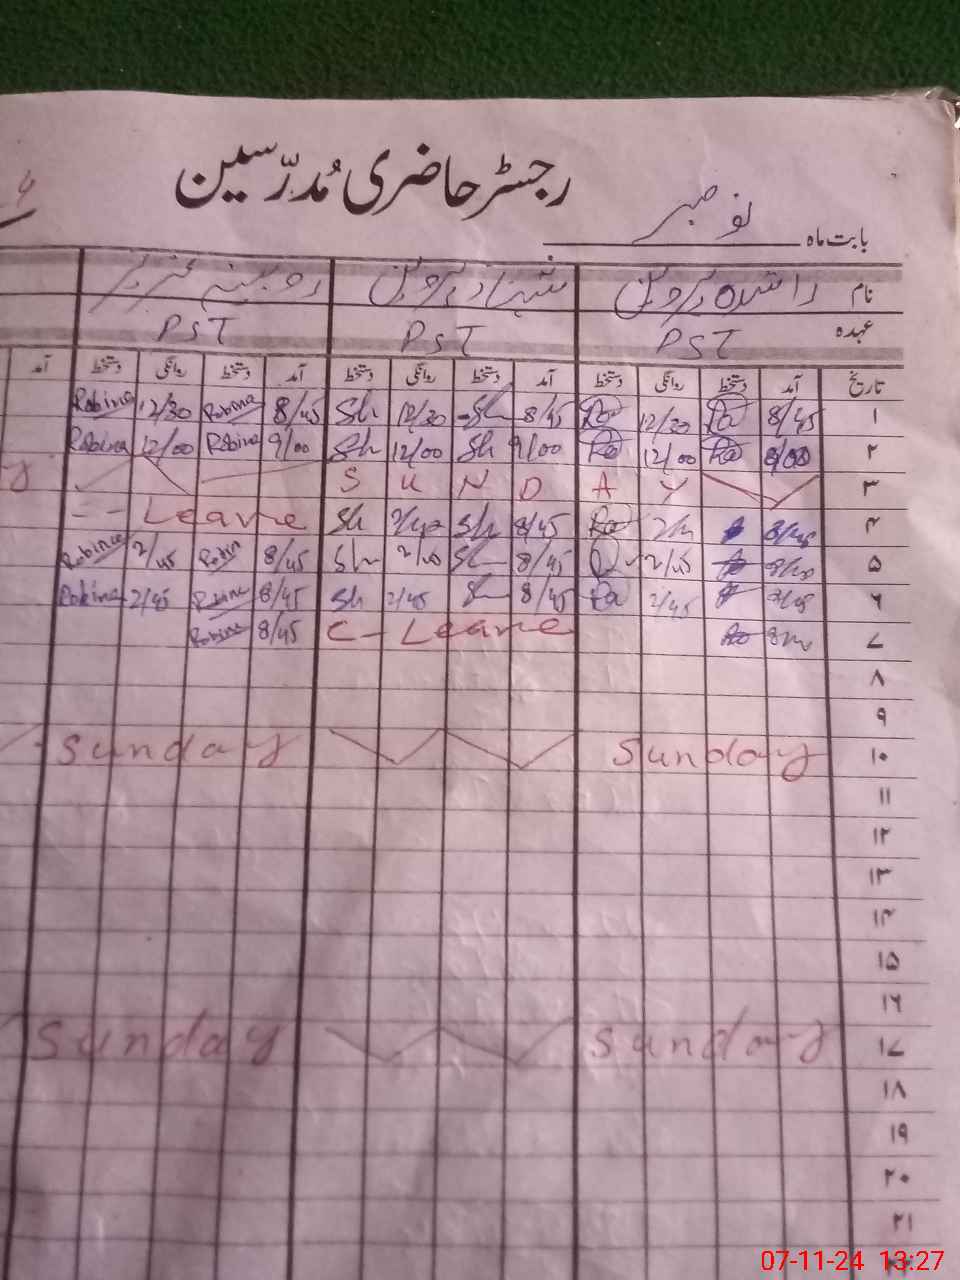 رجسٹر حاضری مُدرّسین
بابت ماہ نومبر
نام راشدہ پروین شہناز پروین روبینہ عزیز
عہدہ PST PST PST
تاریخ آمد دستخط روانگی دستخط آمد دستخط روانگی دستخط آمد دستخط روانگی دستخط آمد
۱ 8/45 Ra 12/30 Ra 8/45 Sh 12/30 Sh 8/45 Robina 12/30 Robina
۲ 9/00 Ra 12/00 Ra 9/00 Sh 12/00 Sh 9/00 Robina 12/00 Robina
۳ S U N D A Y
۴ 8/45 Ra 8/45 Sh Sh Leave
۵ 2/45 8/45 Sh Sh 8/45 Robin 2/45 Robina
۶ 2/45 Ra 8/45 Sh 2/45 Sh 8/45 Robina 2/45 Robina
۷ Ra C-Leave 8/45 Robina
۸
۹
۱۰ Sunday Sunday
۱۱
۱۲
۱۳
۱۴
۱۵
۱۶
۱۷ Sunday Sunday
۱۸
۱۹
۲۰
۲۱
07-11-24 13:27